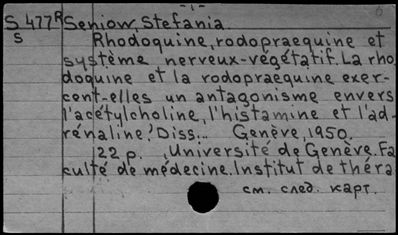 -1-
6
S 477R Seniow, Stefania.
S Rhodoquine, rodopraequine et
système nerveux-végétatif. La rho
doquine et la rodopraequine exer-
cent-elles un antagonisme envers
l'acétylcholine, l'histamine et l'ad-
rénaline? Diss... Genève, 1950.
22 p. Université de Genève. Fa
culté de médecine. Institut de théra
см. след. карт.